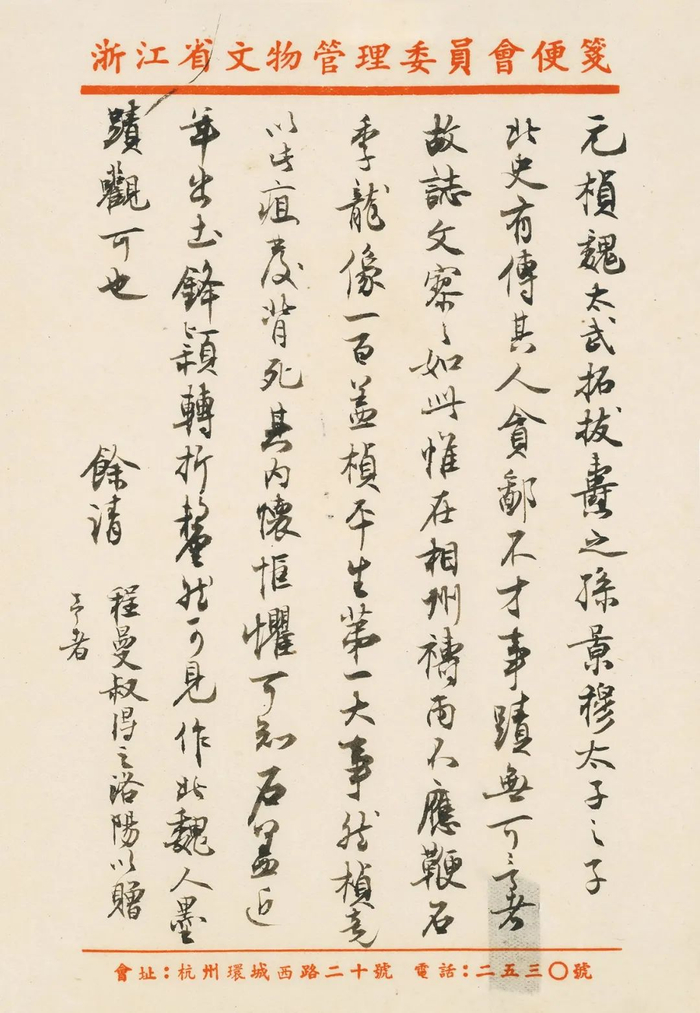 浙江省文物管理委員會便箋
元楨魏太武拓拔燾之孫景穆太子之子
北史有傳其人貪鄙不才事蹟無可言者
故誌文寥〻如此惟在相州禱雨不應鞭石
季龍像一百蓋楨平生第一大事然楨竟
以此疽發背死其內懷恇懼可知石蓋近
年出土鋒穎轉折釐然可見作北魏人墨
蹟觀可也
餘清
程曼叔得之洛陽以贈
予者
會址：杭州環城西路二十號 電話：二五三〇號